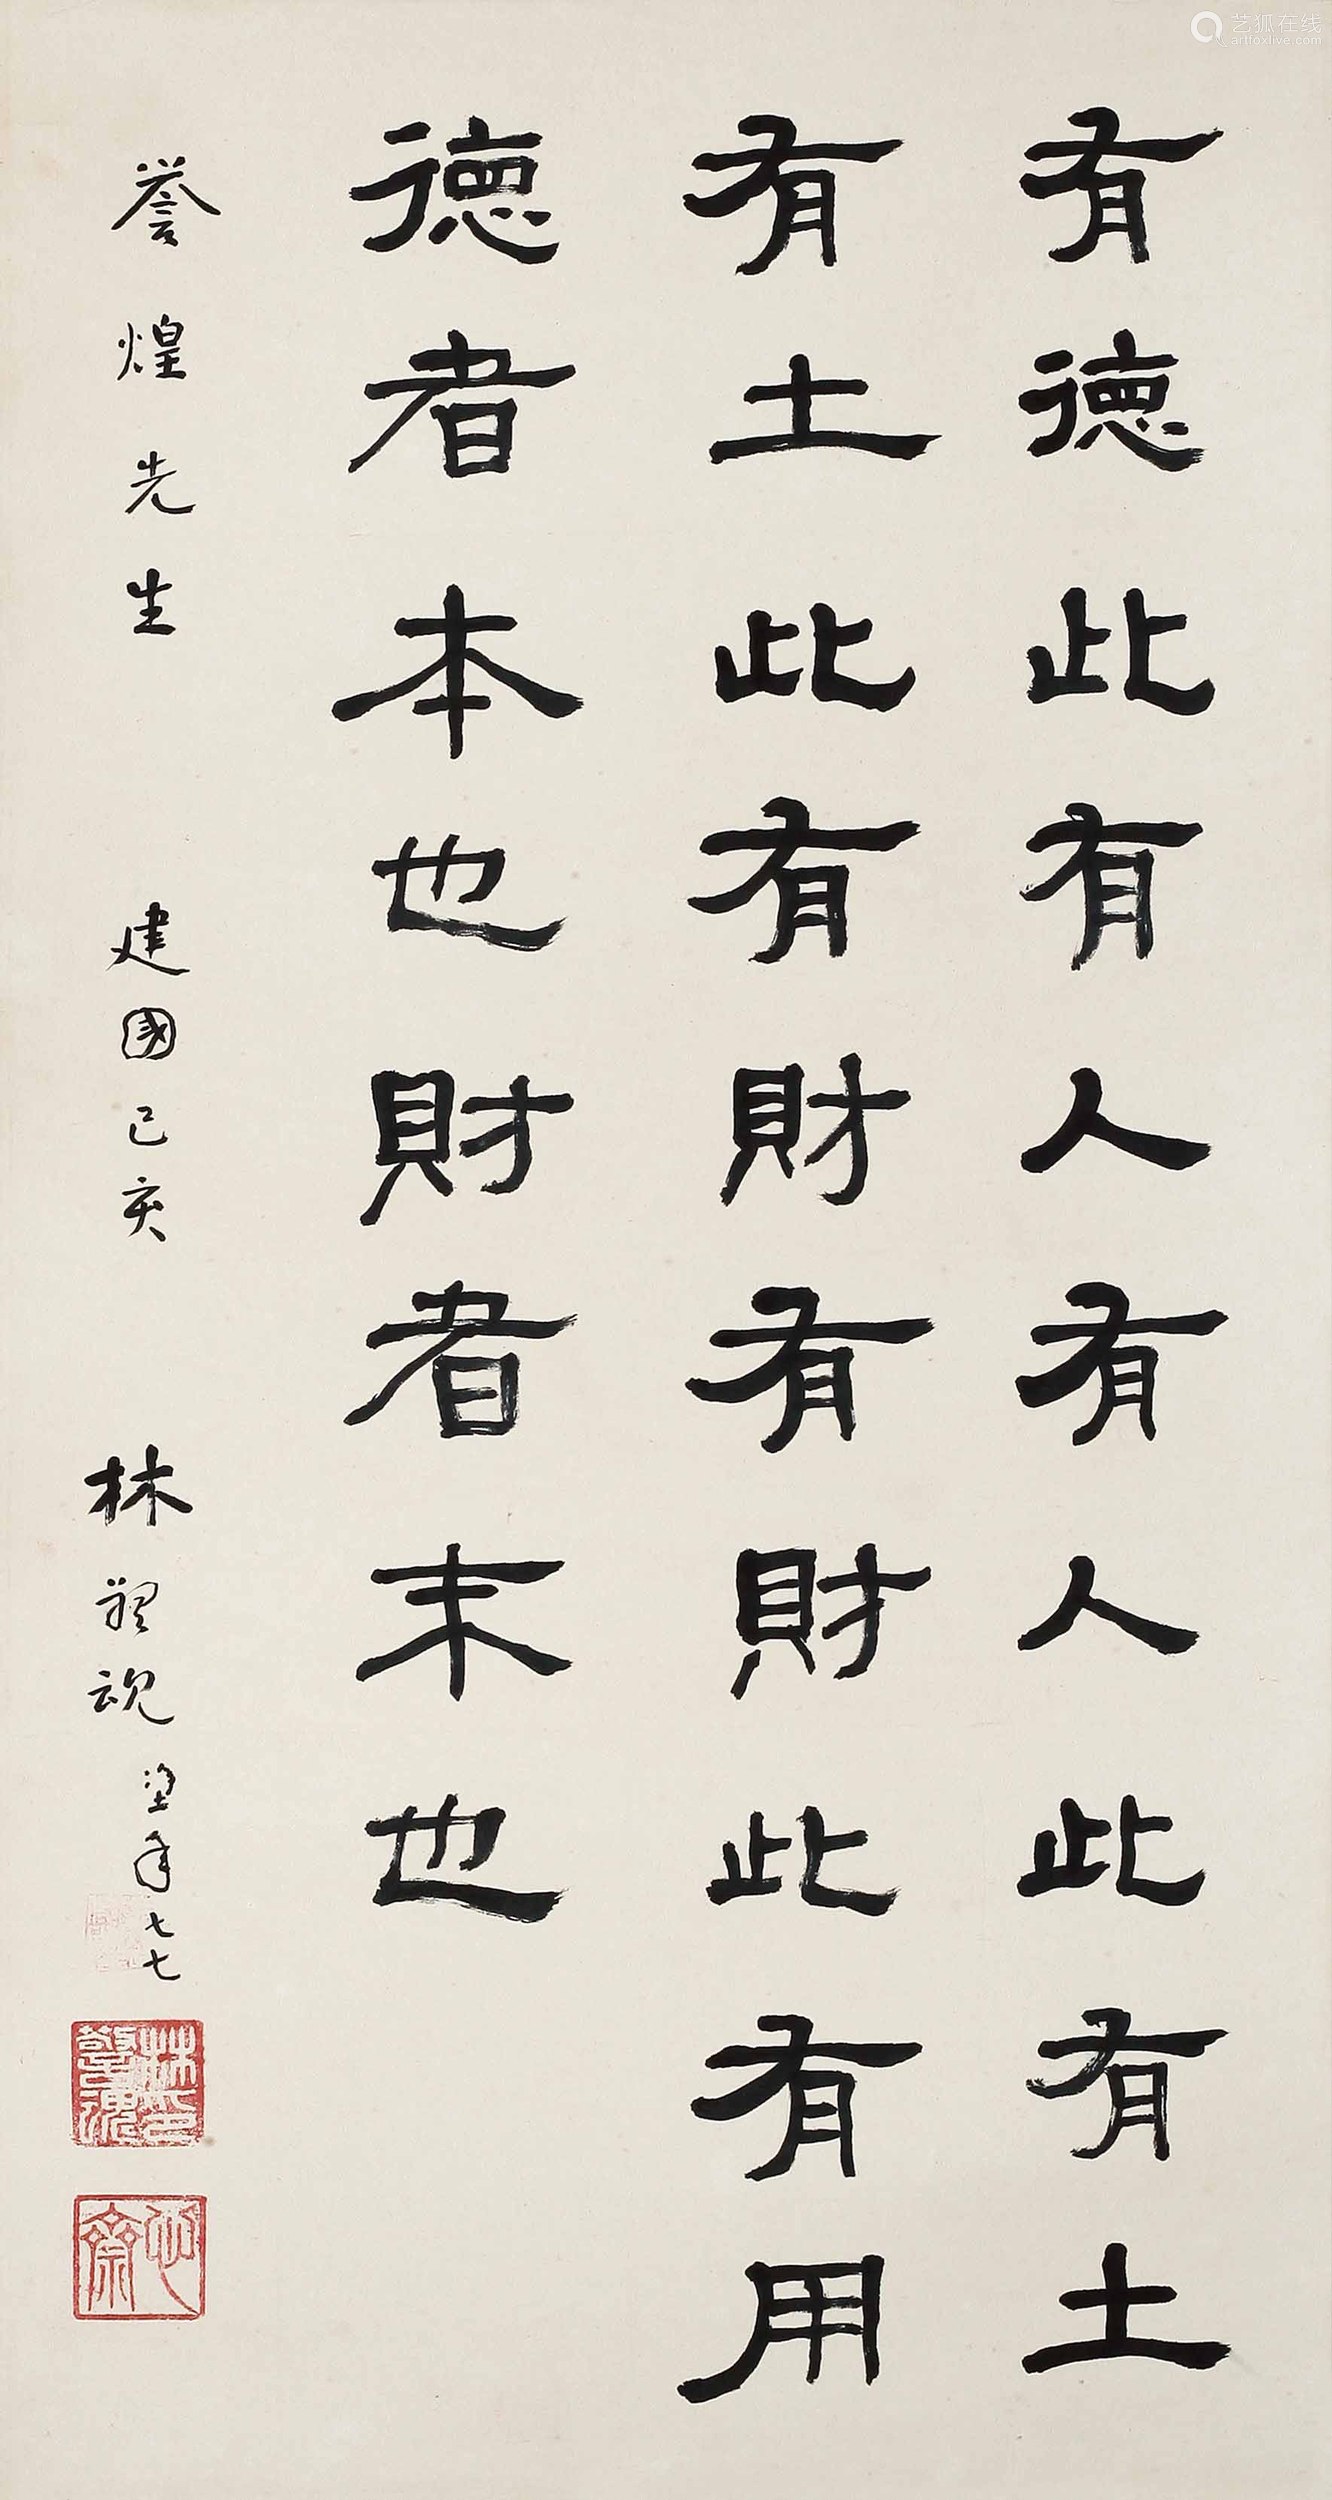 有德此有人有人此有土
有土此有財有財此有用
德者本也財者末也
誉煌先生 建國己亥 林 魂 年七七
艺狐在线
artfoxlive.com